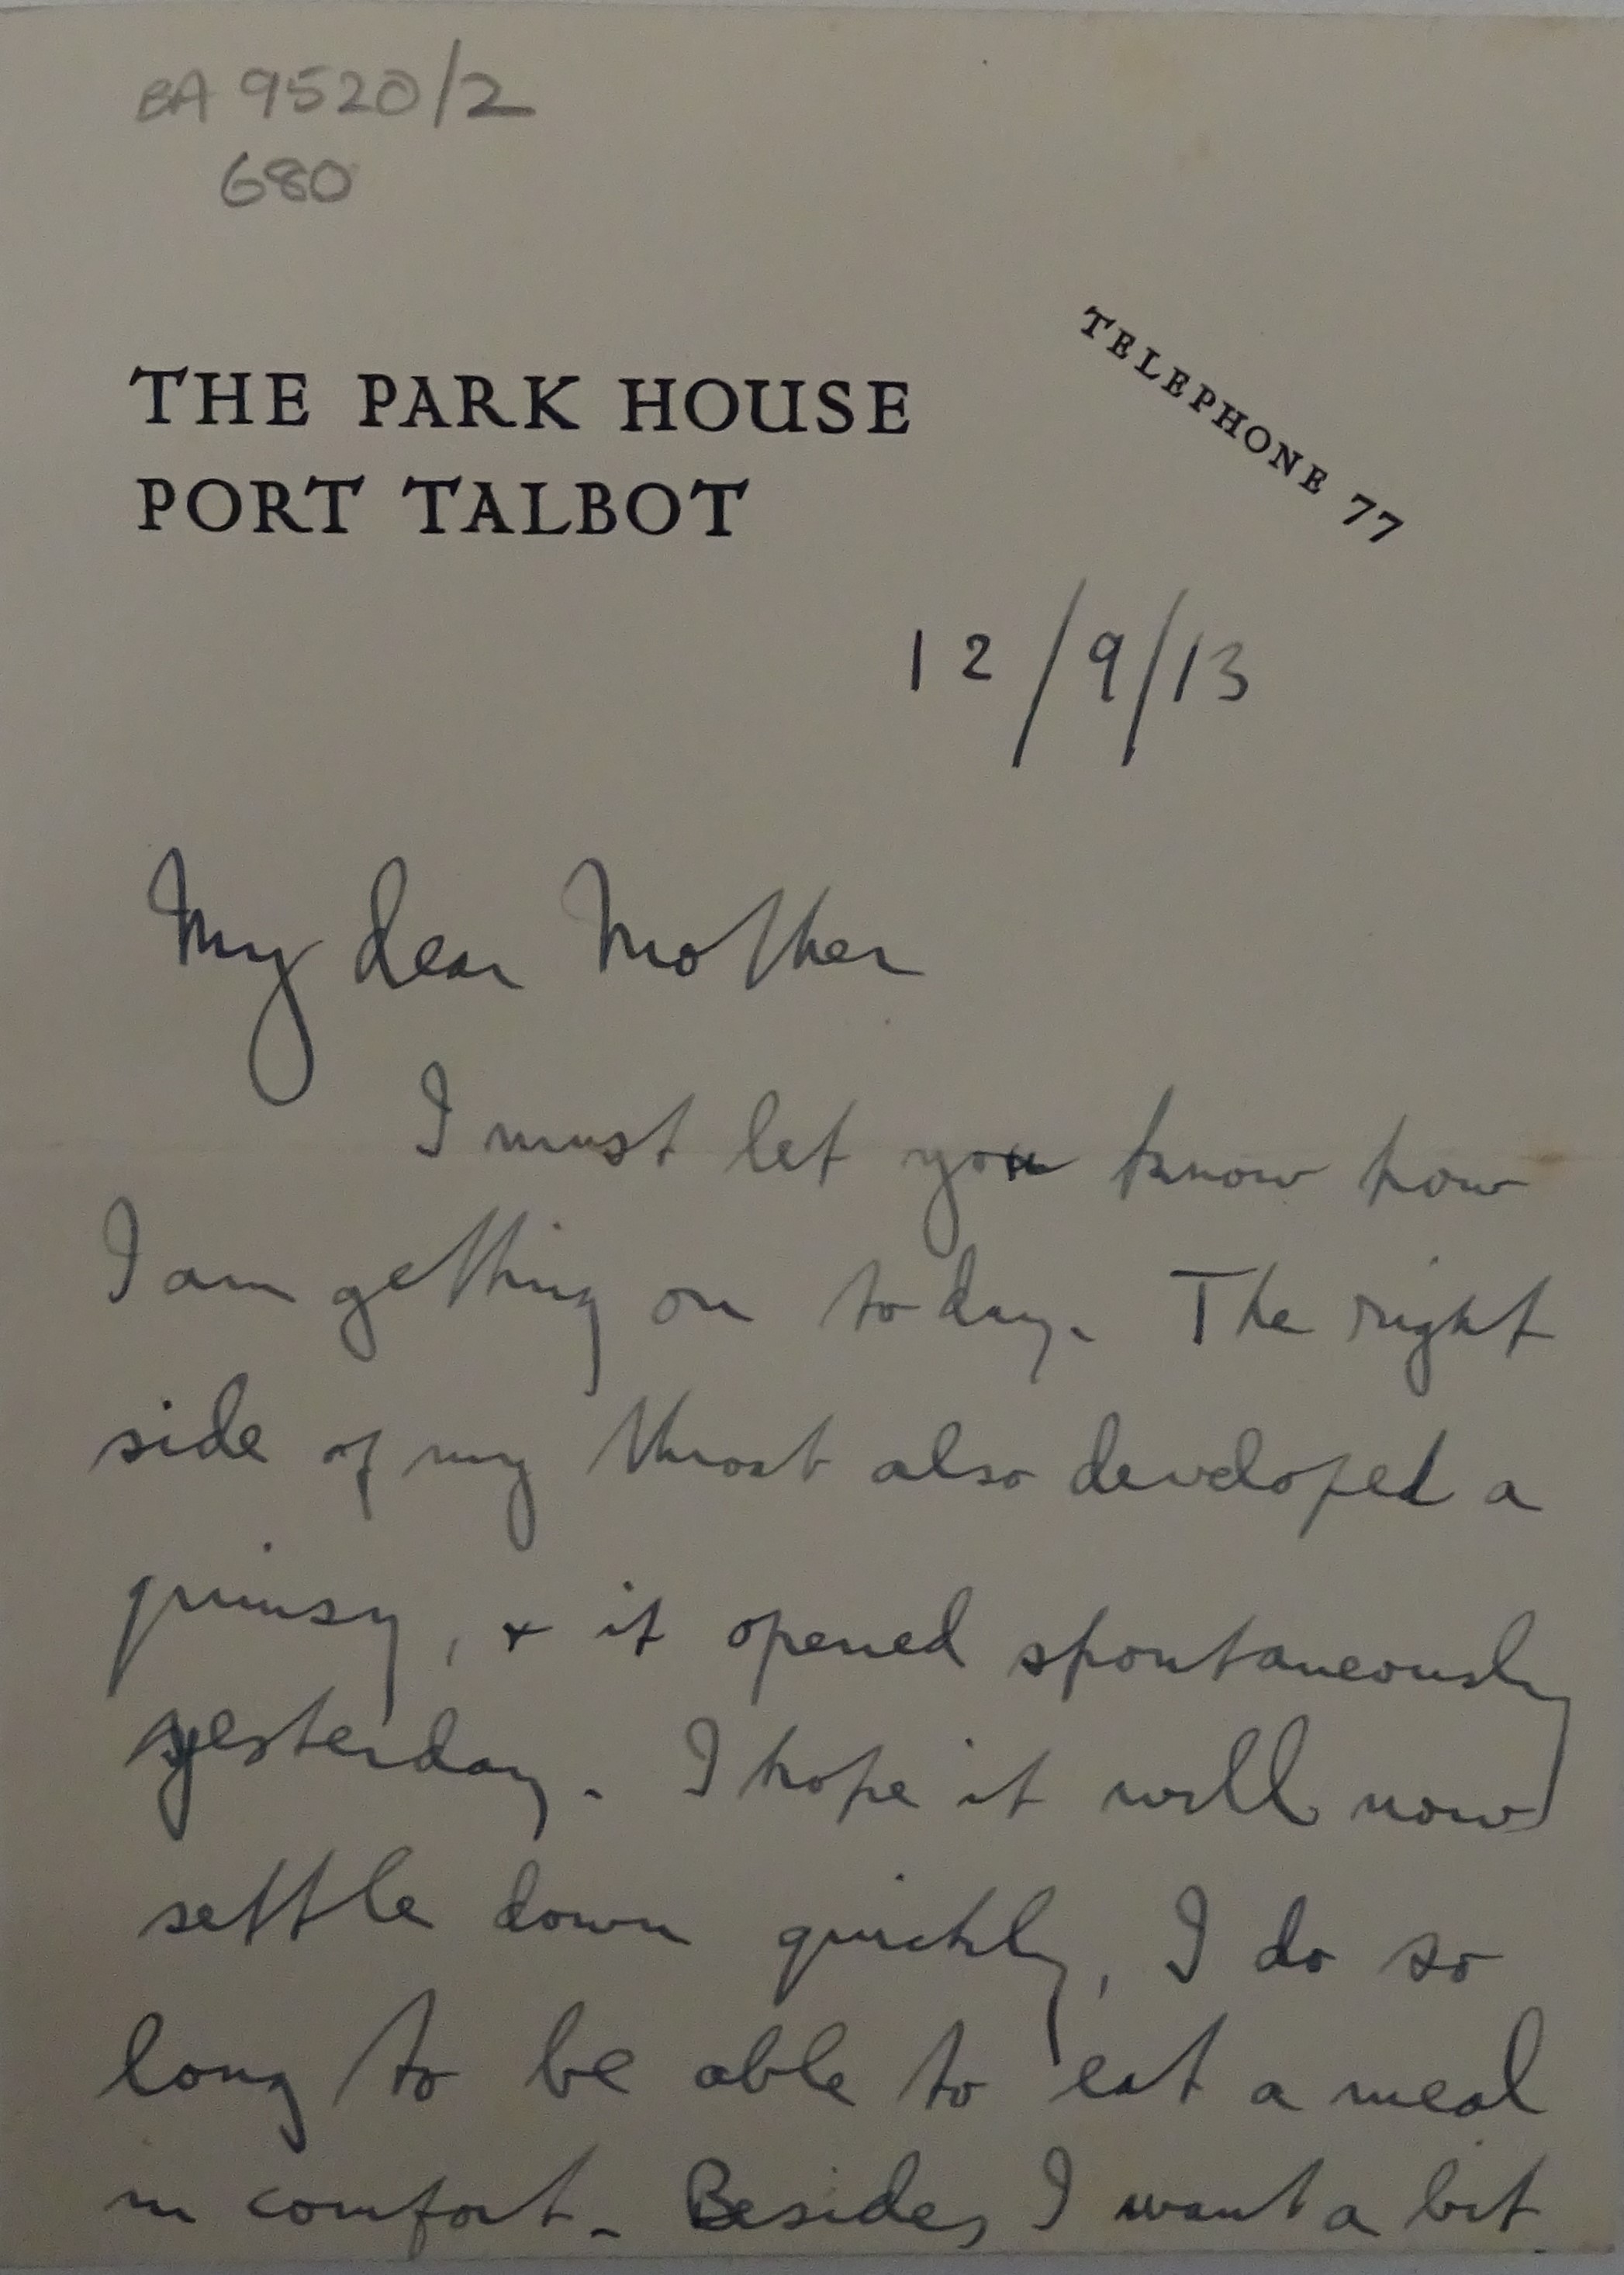 BA 9520/2
680
THE PARK HOUSE
PORT TALBOT
TELEPHONE 77
12/9/13
My dear Mother
I must let you know how
I am getting on to day. The right
side of my throat also developed a
quinsy, & it opened spontaneously
yesterday. I hope it will now
settle down quickly, I do so
long to be able to eat a meal
in comfort. Besides, I want a bit